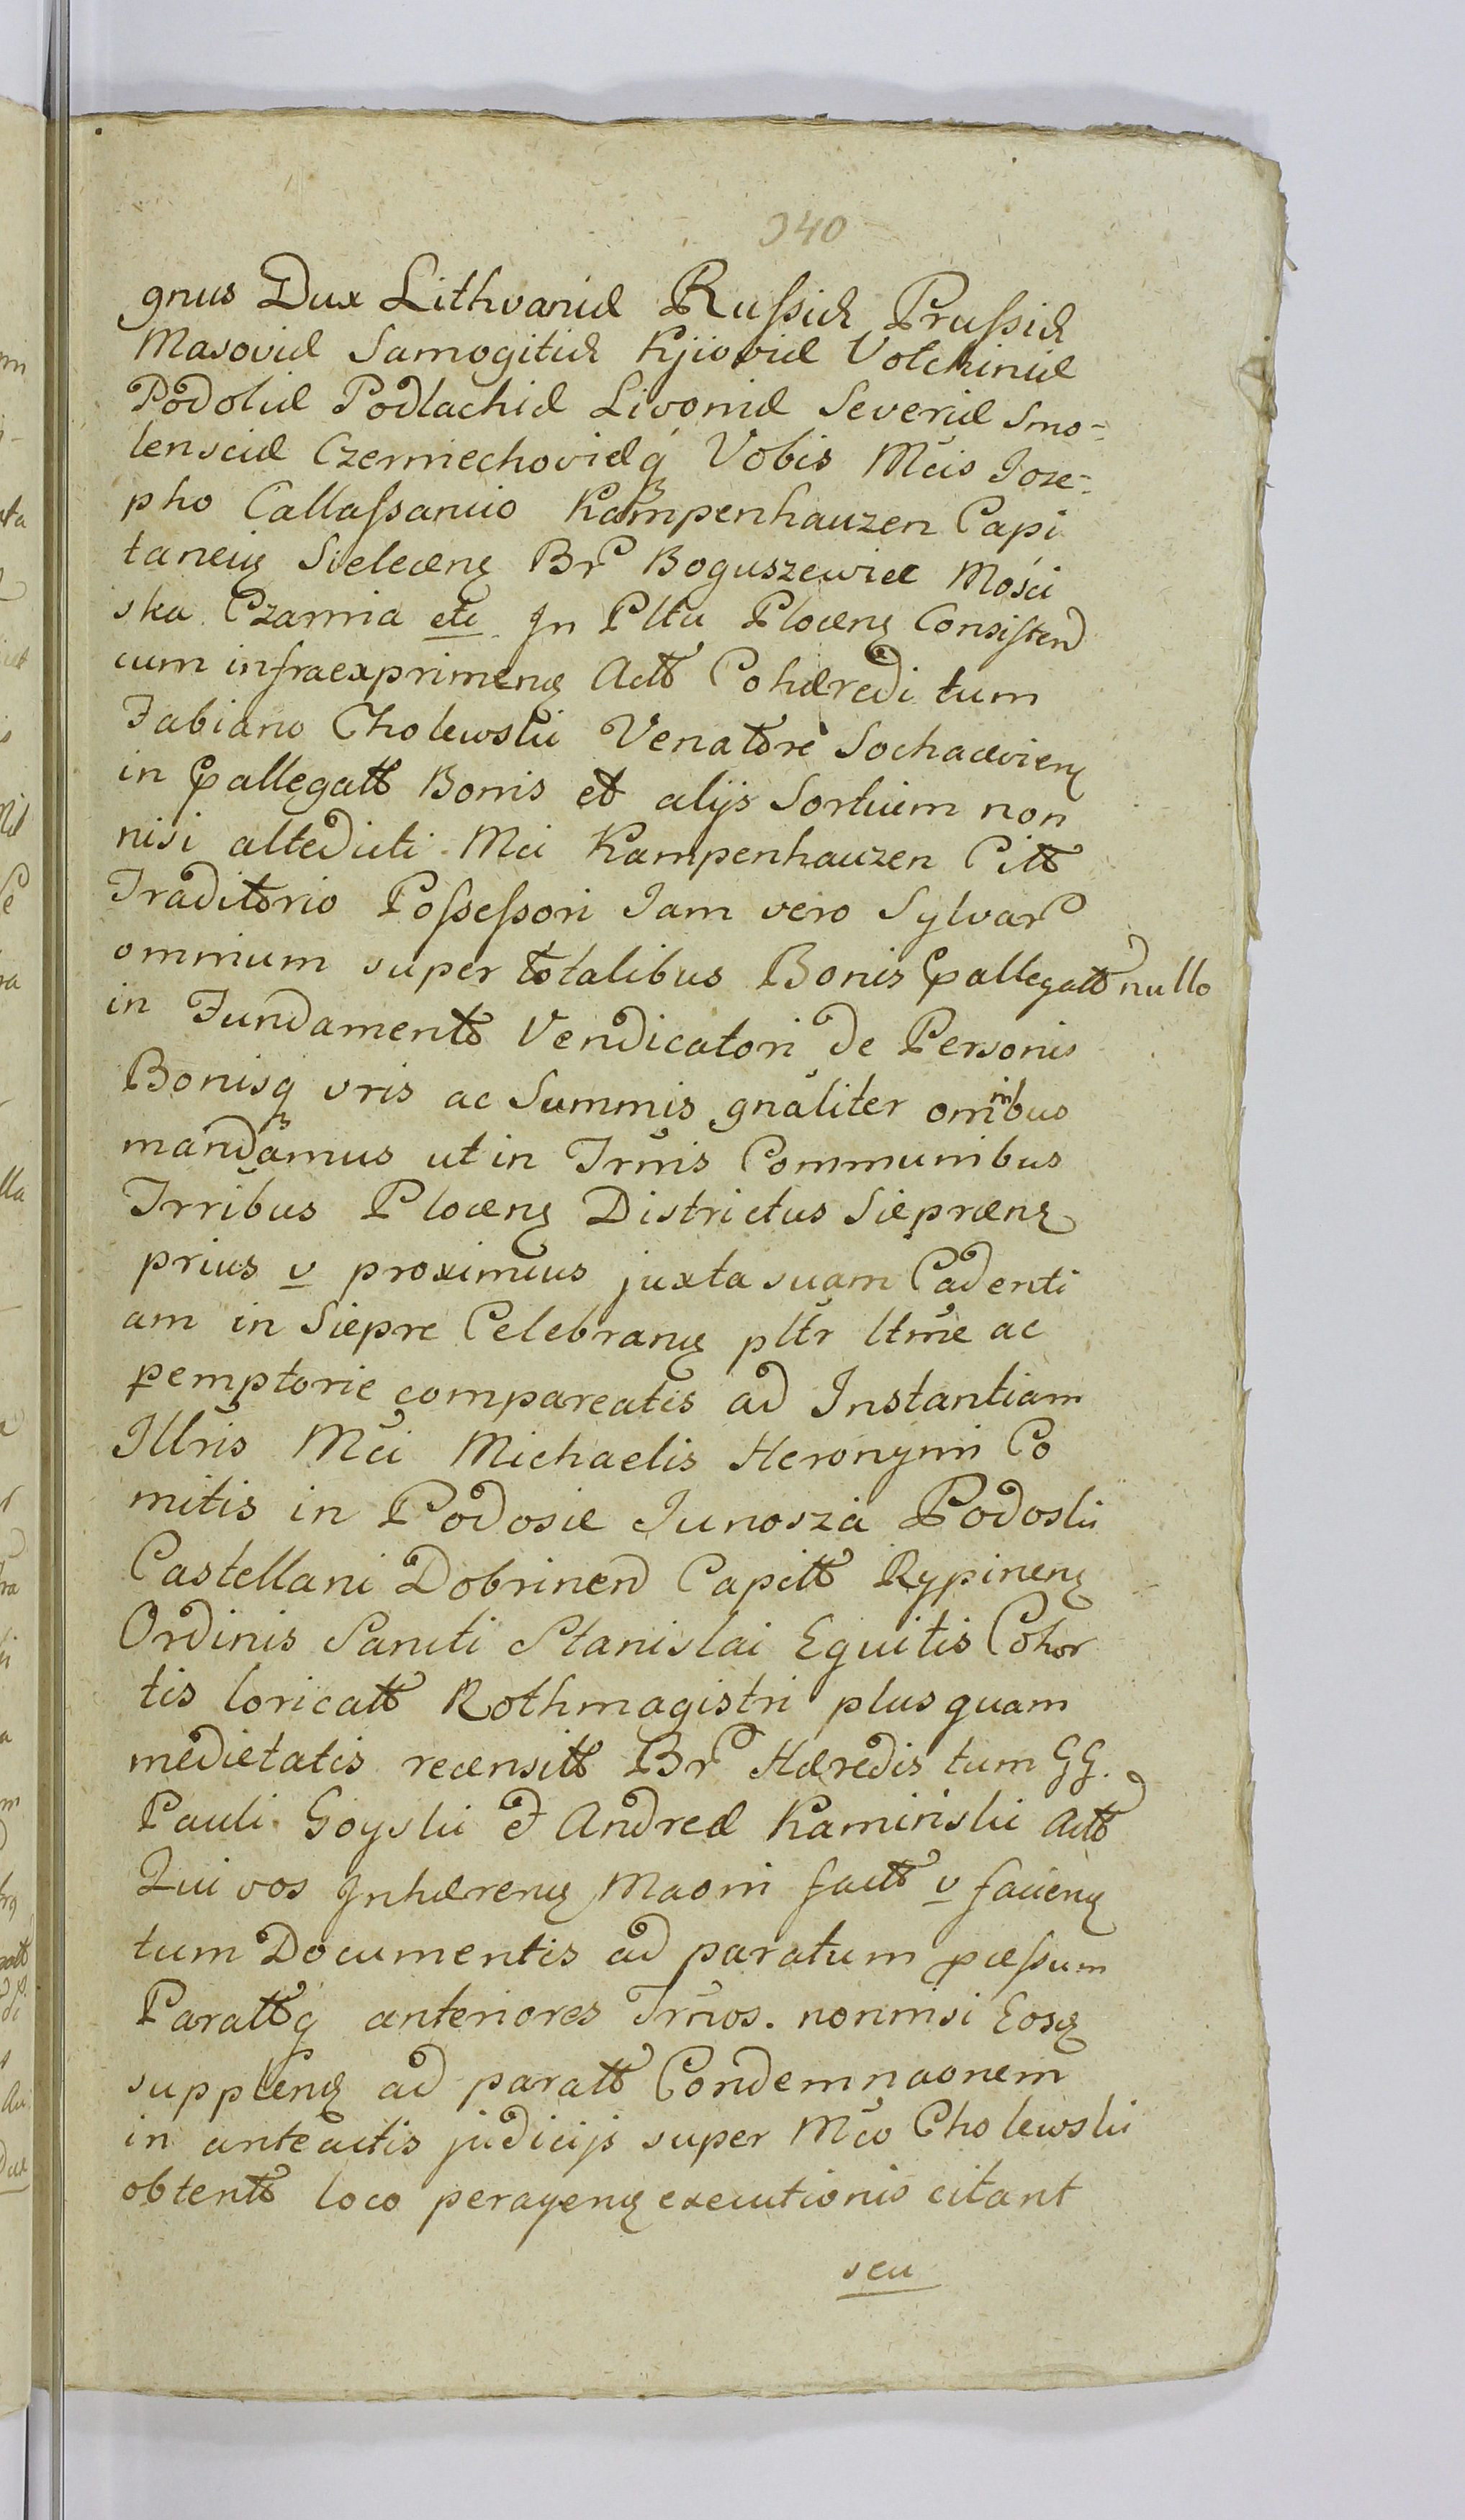 340
gnus Dux Lithvaniæ Russiæ Prussiæ
Masoviæ Samogitiæ Kijioviæ Volchiniæ
Podoliæ Podlachiæ Livoniæ Severiæ Smo=
lensciæ Czerniechoviæq̃ Vobis Mcis Joze=
pho Callassantio Kampenhauzen Capi
taneių Sielecenę Br̃ Boguszewice Mości
ska Czarnia etc In Pltu Plocenę Consistend
cum infraexprimenę Actt Cohæredi tum
Fabiano Cholewski Venatore Sochacevienę
in pallegatt Bonis et alijs Sortium non
nisi altedicti Mci Kampenhauzen Citt
Traditorio Possessori Jam vero Sylvar̃
omnium super totalibus Bonis pallegatt nullo
in Fundamento Vendicatori de Personis
Bonisq̃ vris ac Summis gnaliter omnibus
mandamus ut in Trmis Communibus
Trribus Plocenę Districtus Sieprcenę
prius v proximius juxta suam Cadenti
am in Sieprc Celebranę pltr ltme ac
pemptorie compareatis ad Instantiam
Illris Mci Michaelis Heronymi Co
mitis in Podosie Junosza Podoski
Castellani Dobrinen Capitt Rypinenę
Ordinis Sancti Stanislai Equitis Cohor
tis loricatt Rothmagistri plus quam
medietatis recensitt Br̃ Hæredis tum GG.
Pauli Goyski et Andreæ Kaminski Actt
Qui vos Inhærenę Maoni factt v facienę
tum Documentis ad paratum pcessum
Parattq̃ anteriores Trmos. nonnisi Eosę
supplenę ad paratt Condemnaonem
in anteactis judicijs super Mco Cholewski
obtentt loco peragenę executionis citant
seu